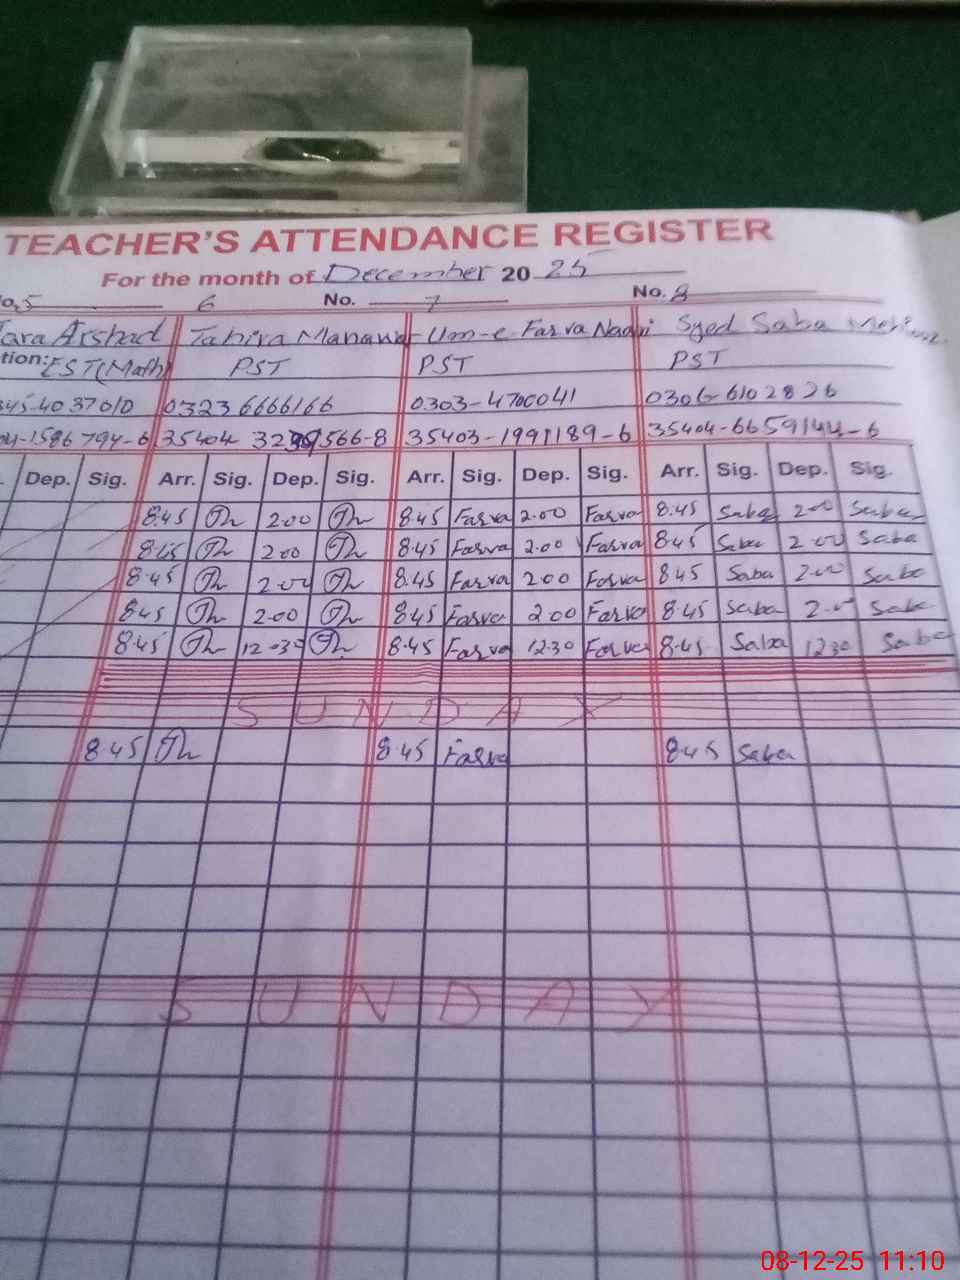 TEACHER'S ATTENDANCE REGISTER
For the month of December 20 25
5 6 No. 7 No. 8
Arshad Tahira Manawar Um-e-Farva Naqvi Syed Saba
tion: EST(Math) PST PST PST
45-4037010 0323 6666166 0303-4700041 0306-6102826
04-1586794-6 35404 566-8 35403-1991189-6 35404-6659144-6
Dep. Sig. Arr. Sig. Dep. Sig. Arr. Sig. Dep. Sig. Arr. Sig. Dep. Sig.
8.45 2.00 8.45 Farva 2.00 Farva 8.45 Saba 2.00 Saba
8.45 2.00 8.45 Farva 2.00 Farva 8.45 Saba 2.00 Saba
8.45 2.00 8.45 Farva 2.00 Farva 8.45 Saba 2.00 Saba
8.45 2.00 8.45 Farva 2.00 Farva 8.45 Saba 2.00 Saba
8.45 12.30 8.45 Farva 12.30 Farva 8.45 Saba 12.30 Saba
SUNDAY
8.45 8.45 Farva 8.45 Saba
SUNDAY
08-12-25 11:10